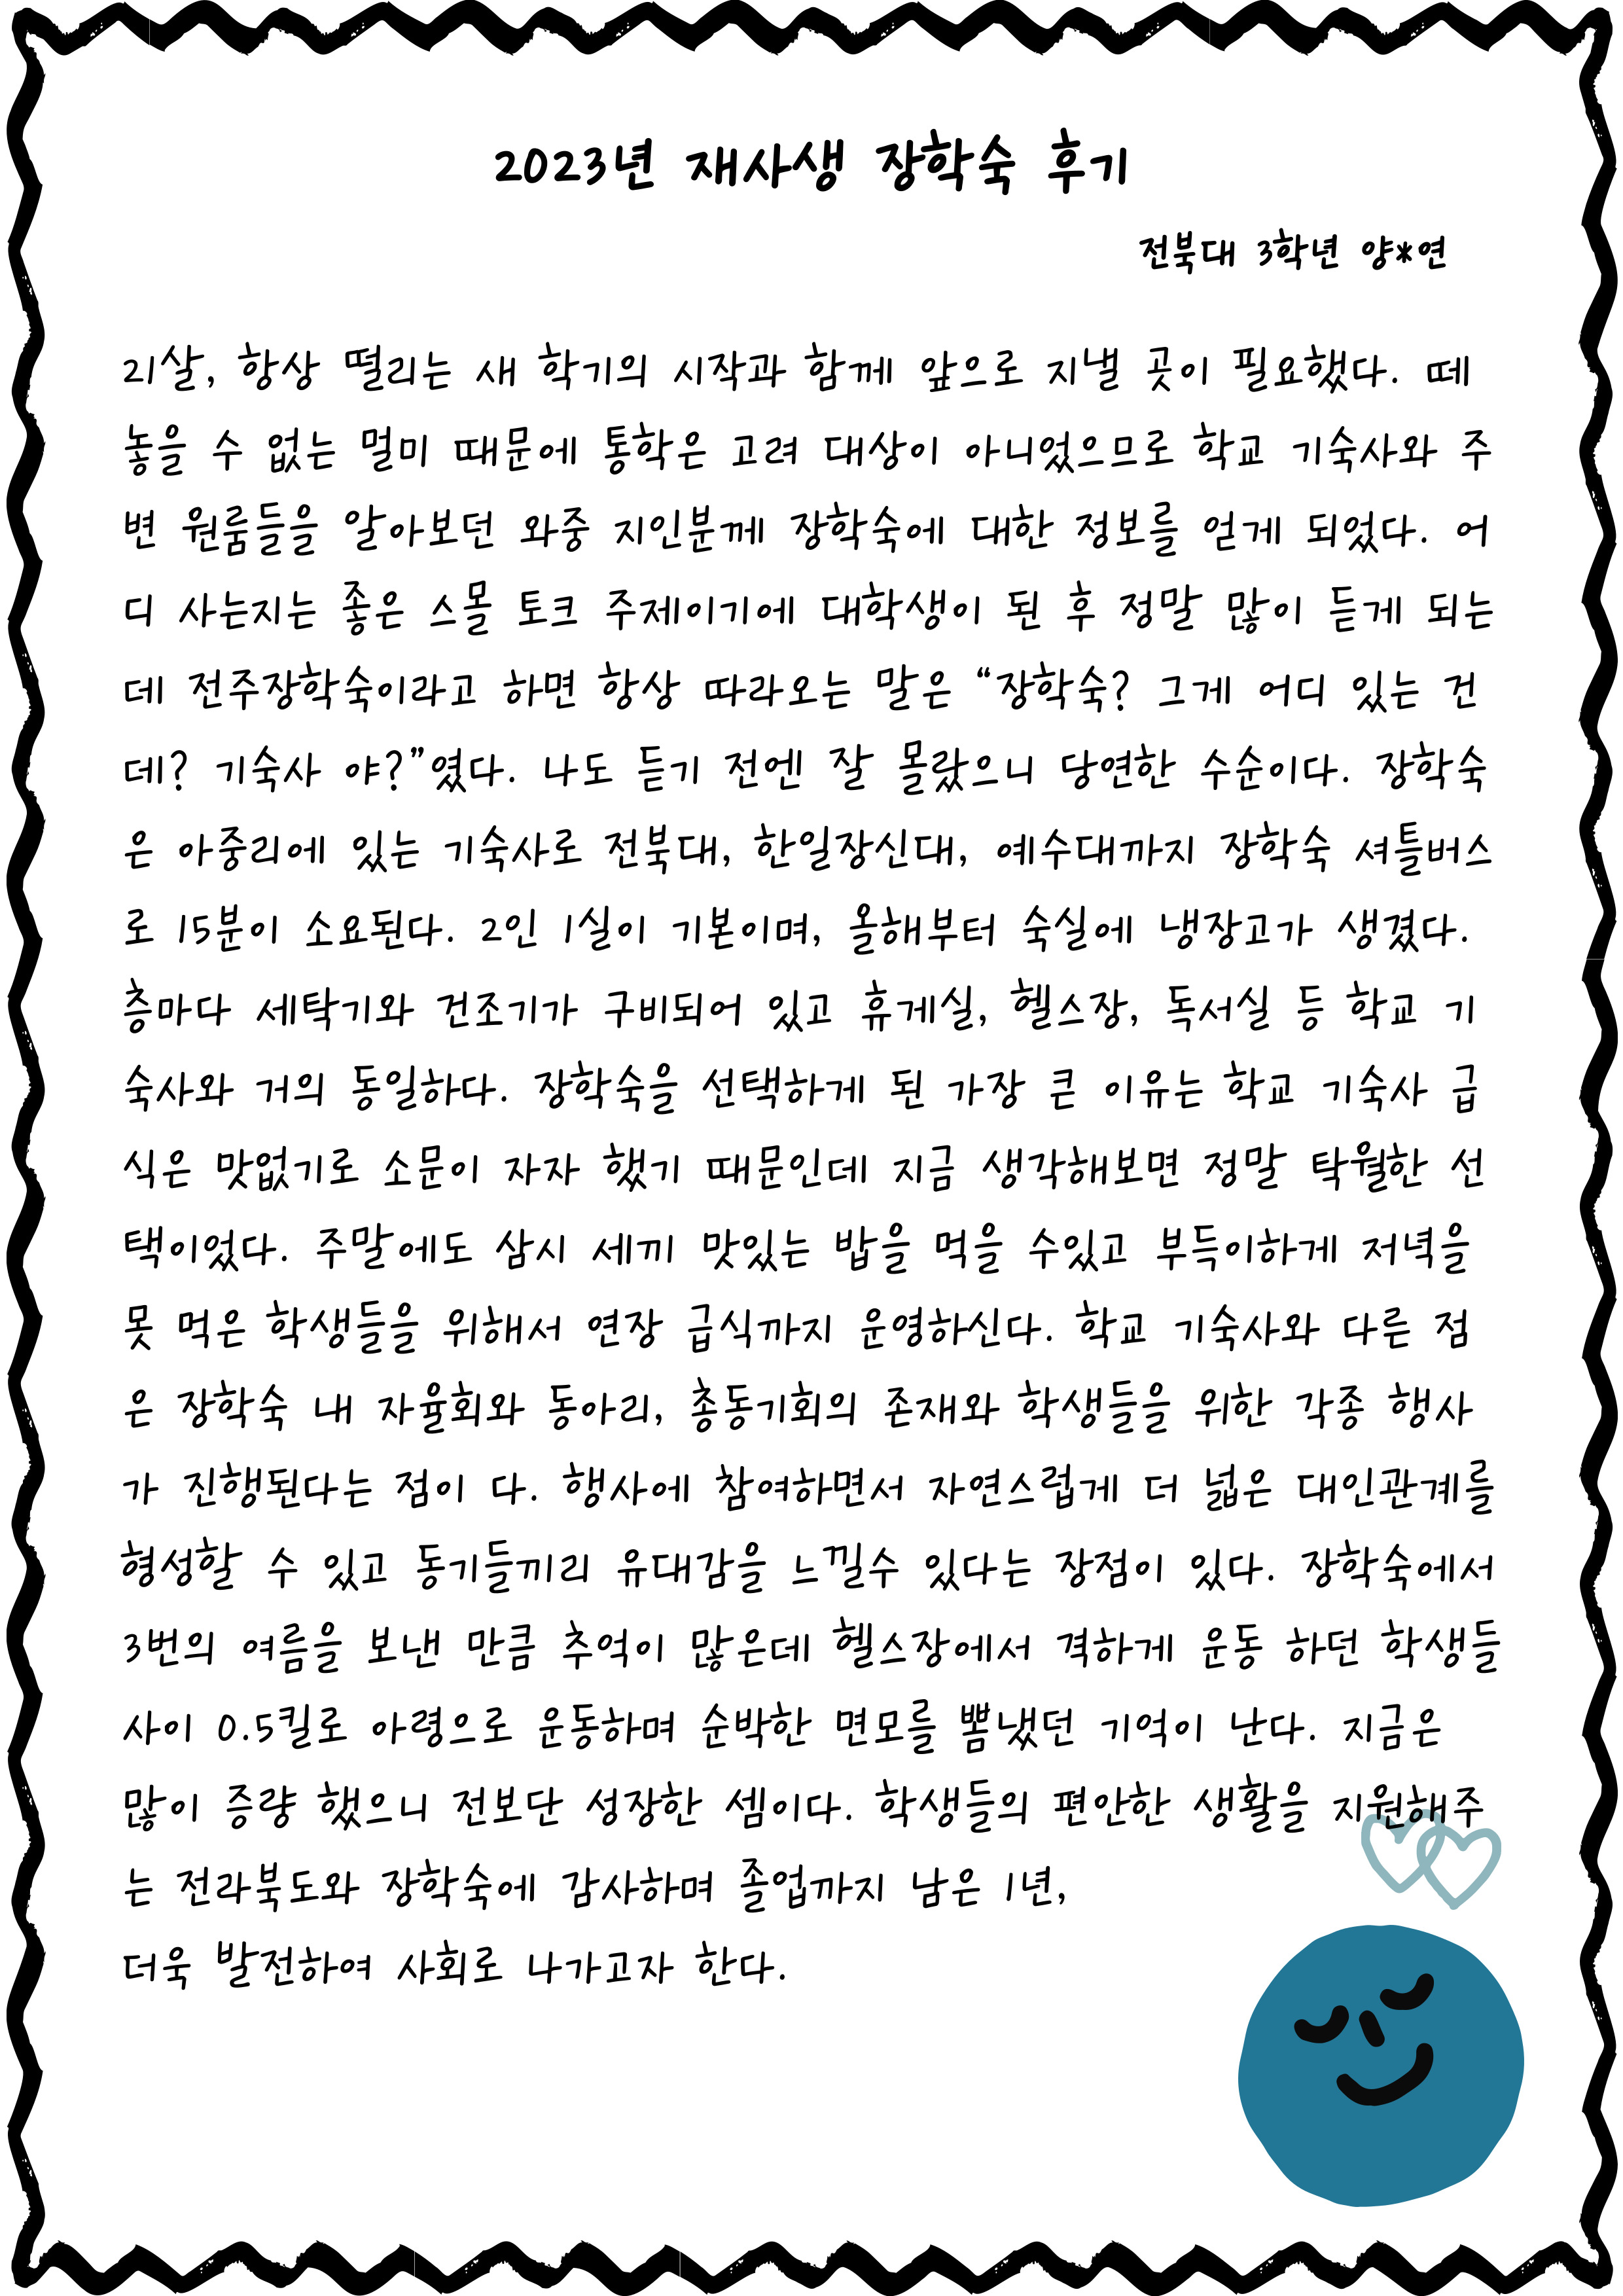 2023년 재사생 장학숙 후기
전북대 3학년 양*연
21살, 항상 떨리는 새 학기의 시작과 함께 앞으로 지낼 곳이 필요했다. 떼
놓을 수 없는 멀미 때문에 통학은 고려 대상이 아니었으므로 학교 기숙사와 주
변 원룸들을 알아보던 와중 지인분께 장학숙에 대한 정보를 얻게 되었다. 어
디 사는지는 좋은 스몰 토크 주제이기에 대학생이 된 후 정말 많이 듣게 되는
데 전주장학숙이라고 하면 항상 따라오는 말은 “장학숙? 그게 어디 있는 건
데? 기숙사 야?”였다. 나도 듣기 전엔 잘 몰랐으니 당연한 수순이다. 장학숙
은 아중리에 있는 기숙사로 전북대, 한일장신대, 예수대까지 장학숙 셔틀버스
로 15분이 소요된다. 2인 1실이 기본이며, 올해부터 숙실에 냉장고가 생겼다.
층마다 세탁기와 건조기가 구비되어 있고 휴게실, 헬스장, 독서실 등 학교 기
숙사와 거의 동일하다. 장학숙을 선택하게 된 가장 큰 이유는 학교 기숙사 급
식은 맛없기로 소문이 자자 했기 때문인데 지금 생각해보면 정말 탁월한 선
택이었다. 주말에도 삼시 세끼 맛있는 밥을 먹을 수있고 부득이하게 저녁을
못 먹은 학생들을 위해서 연장 급식까지 운영하신다. 학교 기숙사와 다른 점
은 장학숙 내 자율회와 동아리, 총동기회의 존재와 학생들을 위한 각종 행사
가 진행된다는 점이 다. 행사에 참여하면서 자연스럽게 더 넓은 대인관계를
형성할 수 있고 동기들끼리 유대감을 느낄수 있다는 장점이 있다. 장학숙에서
3번의 여름을 보낸 만큼 추억이 많은데 헬스장에서 격하게 운동 하던 학생들
사이 0.5킬로 아령으로 운동하며 순박한 면모를 뽐냈던 기억이 난다. 지금은
많이 증량 했으니 전보단 성장한 셈이다. 학생들의 편안한 생활을 지원해주
는 전라북도와 장학숙에 감사하며 졸업까지 남은 1년,
더욱 발전하여 사회로 나가고자 한다.